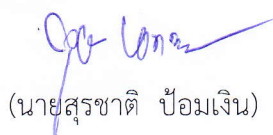 (นายสุรชาติ  ป้อมเงิน)